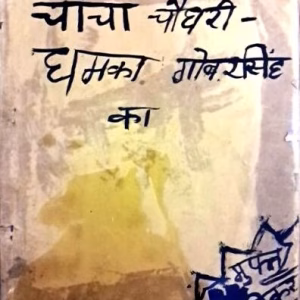 चाचा चौधरी -
धमका गोबरसिंह
का
मुफ्त